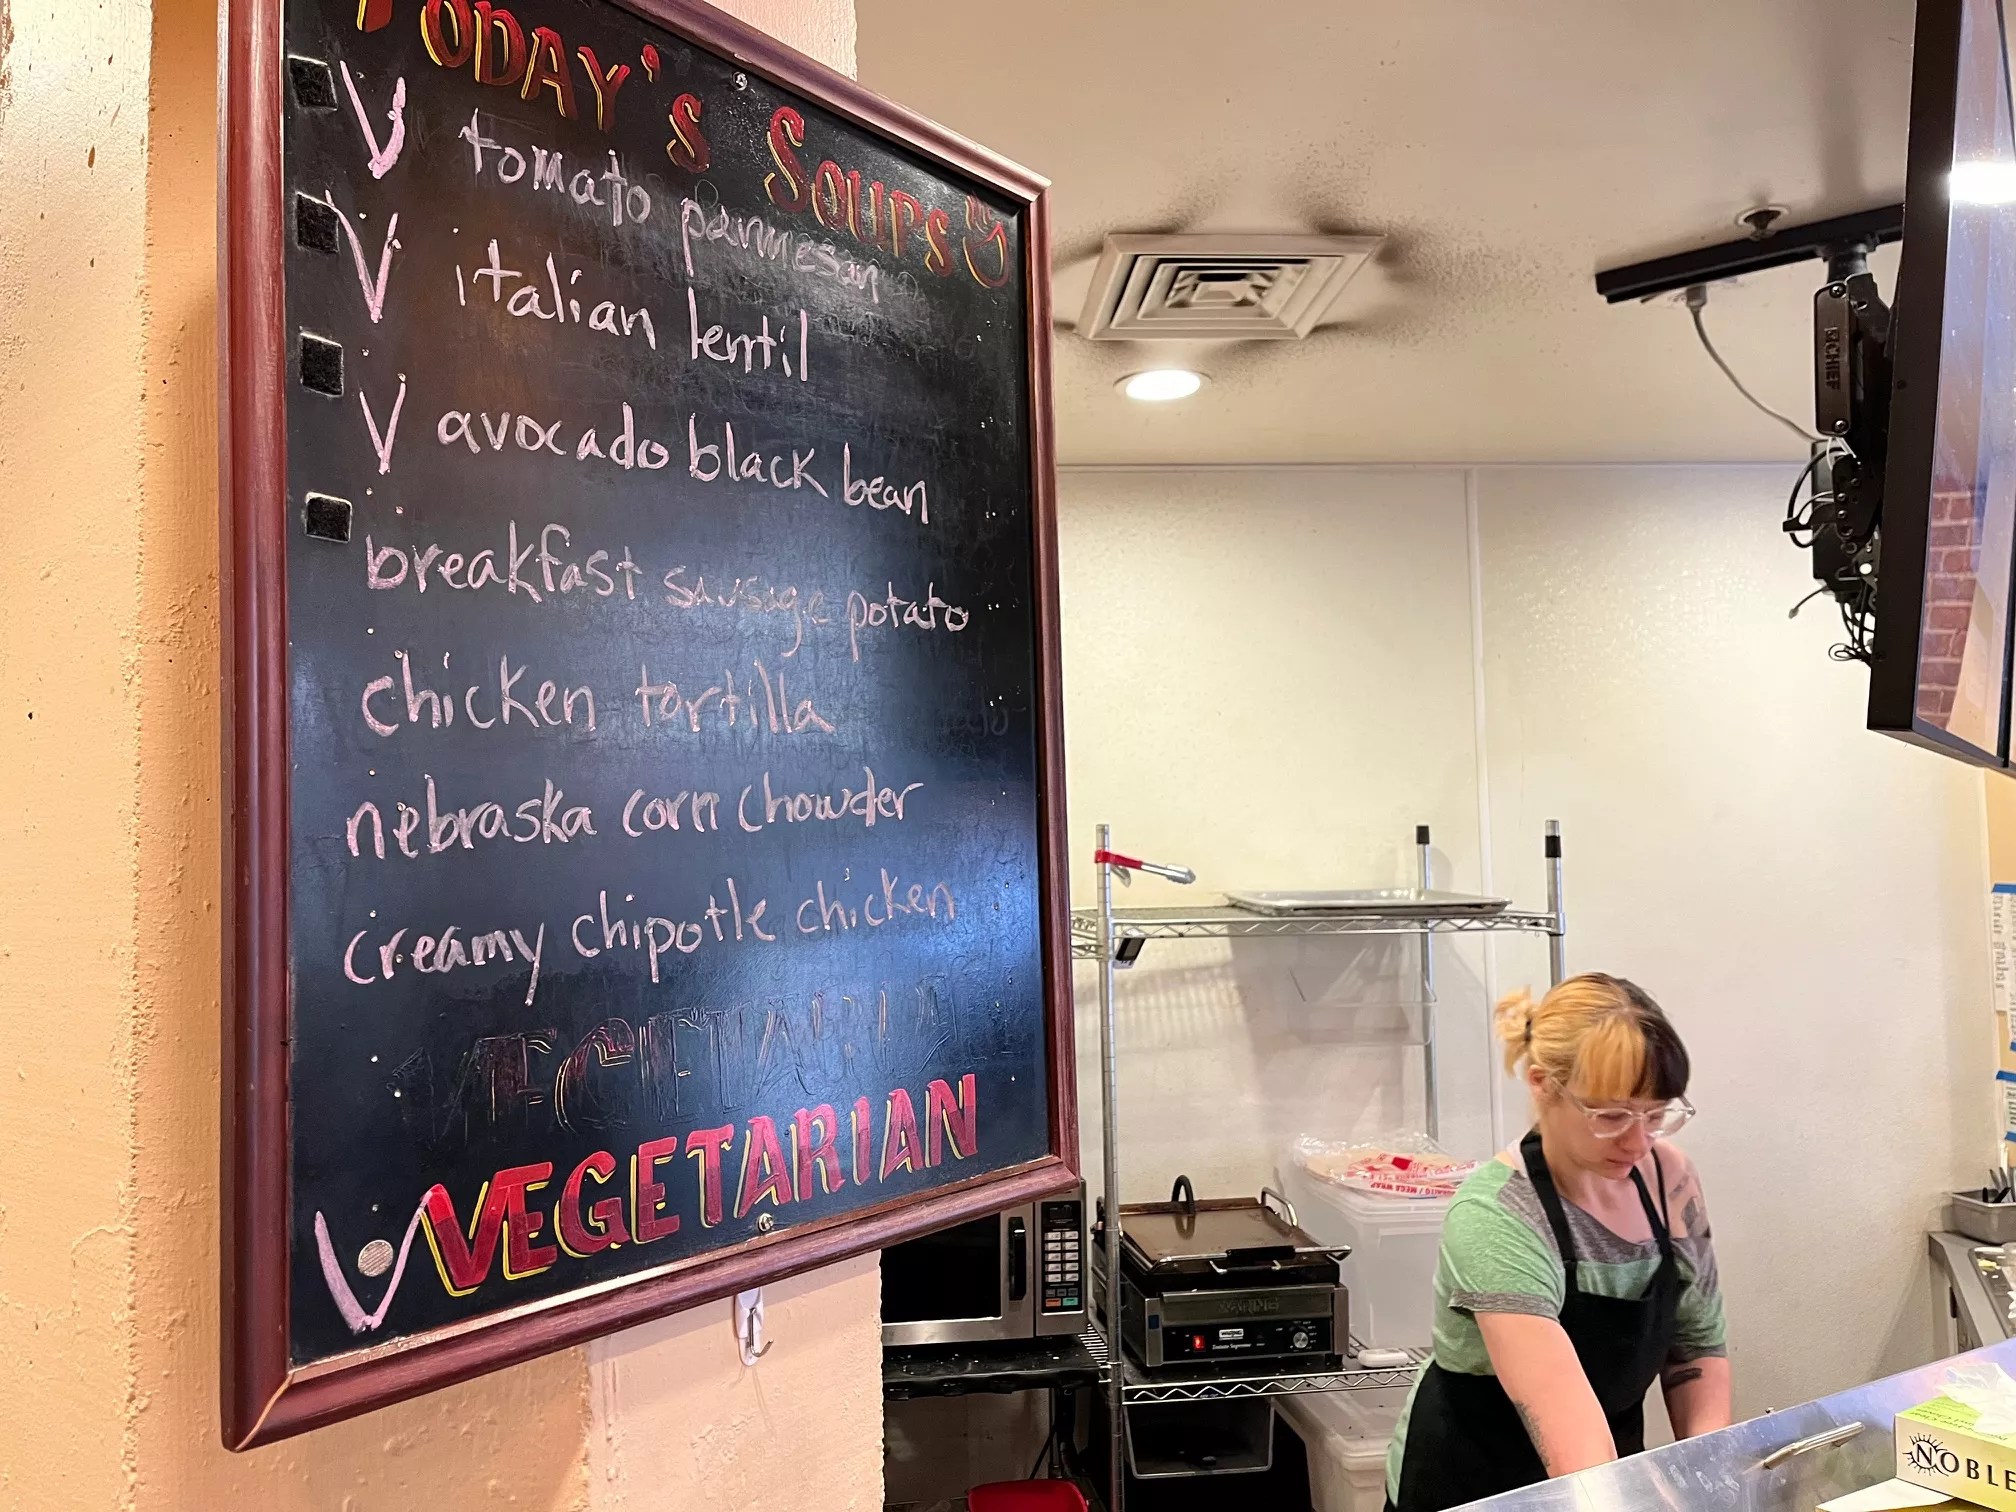 TODAY'S SOUPS
V tomato parmesan
V italian lentil
V avocado black bean
breakfast sausage potato
chicken tortilla
nebraska corn chowder
creamy chipotle chicken
VEGETARIA
V VEGETARIAN
CHIEF
WARING
NOBLE